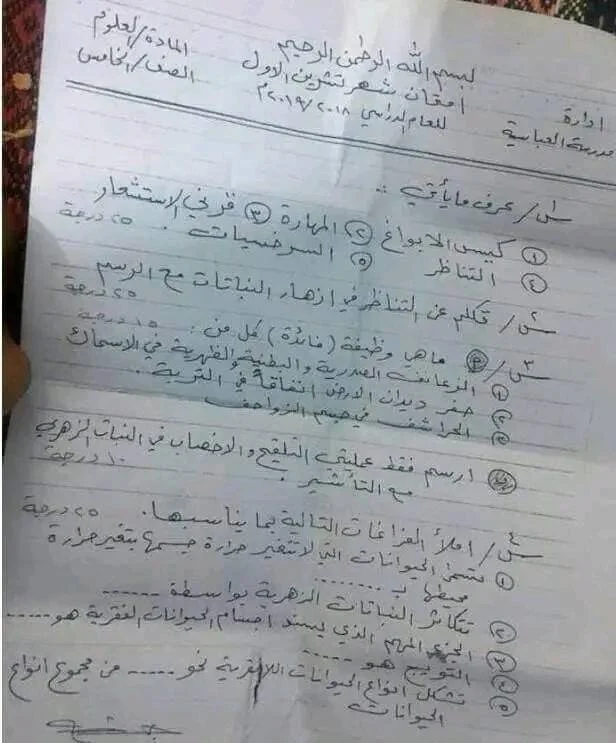 بسم الله الرحمن الرحيم
ادارة
مدرسة العباسية
امتحان شهر تشرين الاول
للعام الدراسي ٢٠١٨/٢٠١٩م
المادة/العلوم
الصف/الخامس
س١/ عرف مايأتي :
① كيس الابواغ ② المهارة ③ قرني الاستشعار
④ التناظر ⑤ السرخسيات . ٢٥ درجة
س٢/ تكلم عن التناظر في ازهار النباتات مع الرسم
٢٥ درجة
س٣/ ماهي وظيفة (فائدة) كل من : ١٥ درجة
① الزعانف الصدرية والبطنية والظهرية في الاسماك
② حفر ديدان الارض انفاقاً في التربة .
③ الحراشف في جسم الزواحف
ارسم فقط عمليتي التلقيح والاخصاب في النبات الزهري
مع التأشير . ١٠ درجة
س٤/ املأ الفراغات التالية بما يناسبها . ٢٥ درجة
① تسمى الحيوانات التي لا تتغير حرارة جسمها بتغير حرارة
محيطها بـ .......
② تتكاثر النباتات الزهرية بواسطة ......
③ الجزء المهم الذي يسند اجسام الحيوانات الفقرية هو .....
④ التويج هو .....
⑤ تشكل انواع الحيوانات اللافقرية نحو ..... من مجموع انواع
الحيوانات